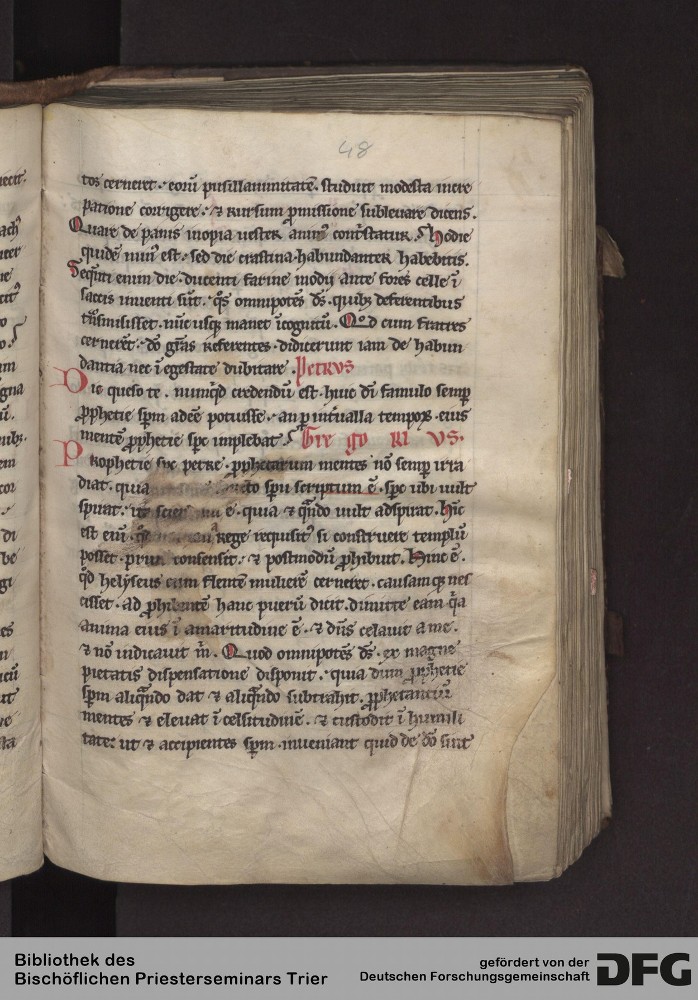 48
tos cerneret. eorū pusillanimitatē. studuit modesta incre
patione corrigere. ⁊ rursum ꝓmissione subleuare dicens.
Quare de panis inopia uester animꝰ contͥstatur. hodie
quidē minꝰ est. sed die crastina habundanter habebitis.
Seqͣnti enim die. ducenti farine modij ante fores celle ī
saccis inuenti sūt. qͦs omnipotēs ds̄. quibꝫ deferentibus
tͣnsmisisset. nūc usqꝫ manet īcognitū. Qͦd cum fratres
cernerēt. dō grās referentes. didicerunt iam de habun
dantia nec ī egestate dubitare. Petrvs
Dic queso te. nūmqͥd credendū est. huic dī famulo semꝑ
ꝓphetie spm̄ adeē potuisse. an ꝑ intͥualla tempoꝝ. eius
mentē ꝓphetie spc̄ implebat. Gre go ri vs.
Prophetie spc̄ petre. ꝓphetarum mentes nō semꝑ irra
diat. quia spū scriptum ē. spc̄ ubi uult
spirat. ē. quia ⁊ qͣndo uult adspirat. hīc
est enī. rege requisitꝰ si construere templū
posset. priuˢ consensit. ⁊ postmodū ꝓhibuit. Hinc ē.
qͦd helyseus cum flentē mulierē cerneret. causamqꝫ nes
cisset. ad ꝓhibentē hanc puerū dicit. dimitte eam qͥa
anima eius ī amaritudine ē. ⁊ dn̄s celauit a me.
⁊ nō indicauit m̄. Quod omnipotēs ds̄. ex magne
pietatis dispensatione disponit. quia dum ꝓphetie
spm̄ aliqͣndo dat ⁊ aliqͣndo subtrahit. ꝓphetantiū
mentes ⁊ eleuat ī celsitudinē. ⁊ custodit ī humili
tate: ut ⁊ accipientes spm̄. inueniant quid de dō sint
Bibliothek des
Bischöflichen Priesterseminars Trier
gefördert von der
Deutschen Forschungsgemeinschaft
DFG